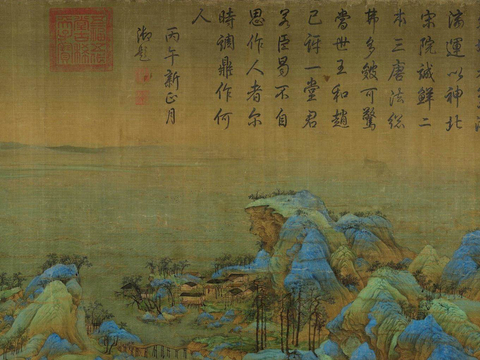 漓運以神北
宋院誠鮮二
本三唐法總
弗多皴可驚
當世王和趙
已訝一堂君
若臣曷不自
思作人者爾
時調鼎作何
人
丙午新正月
御題